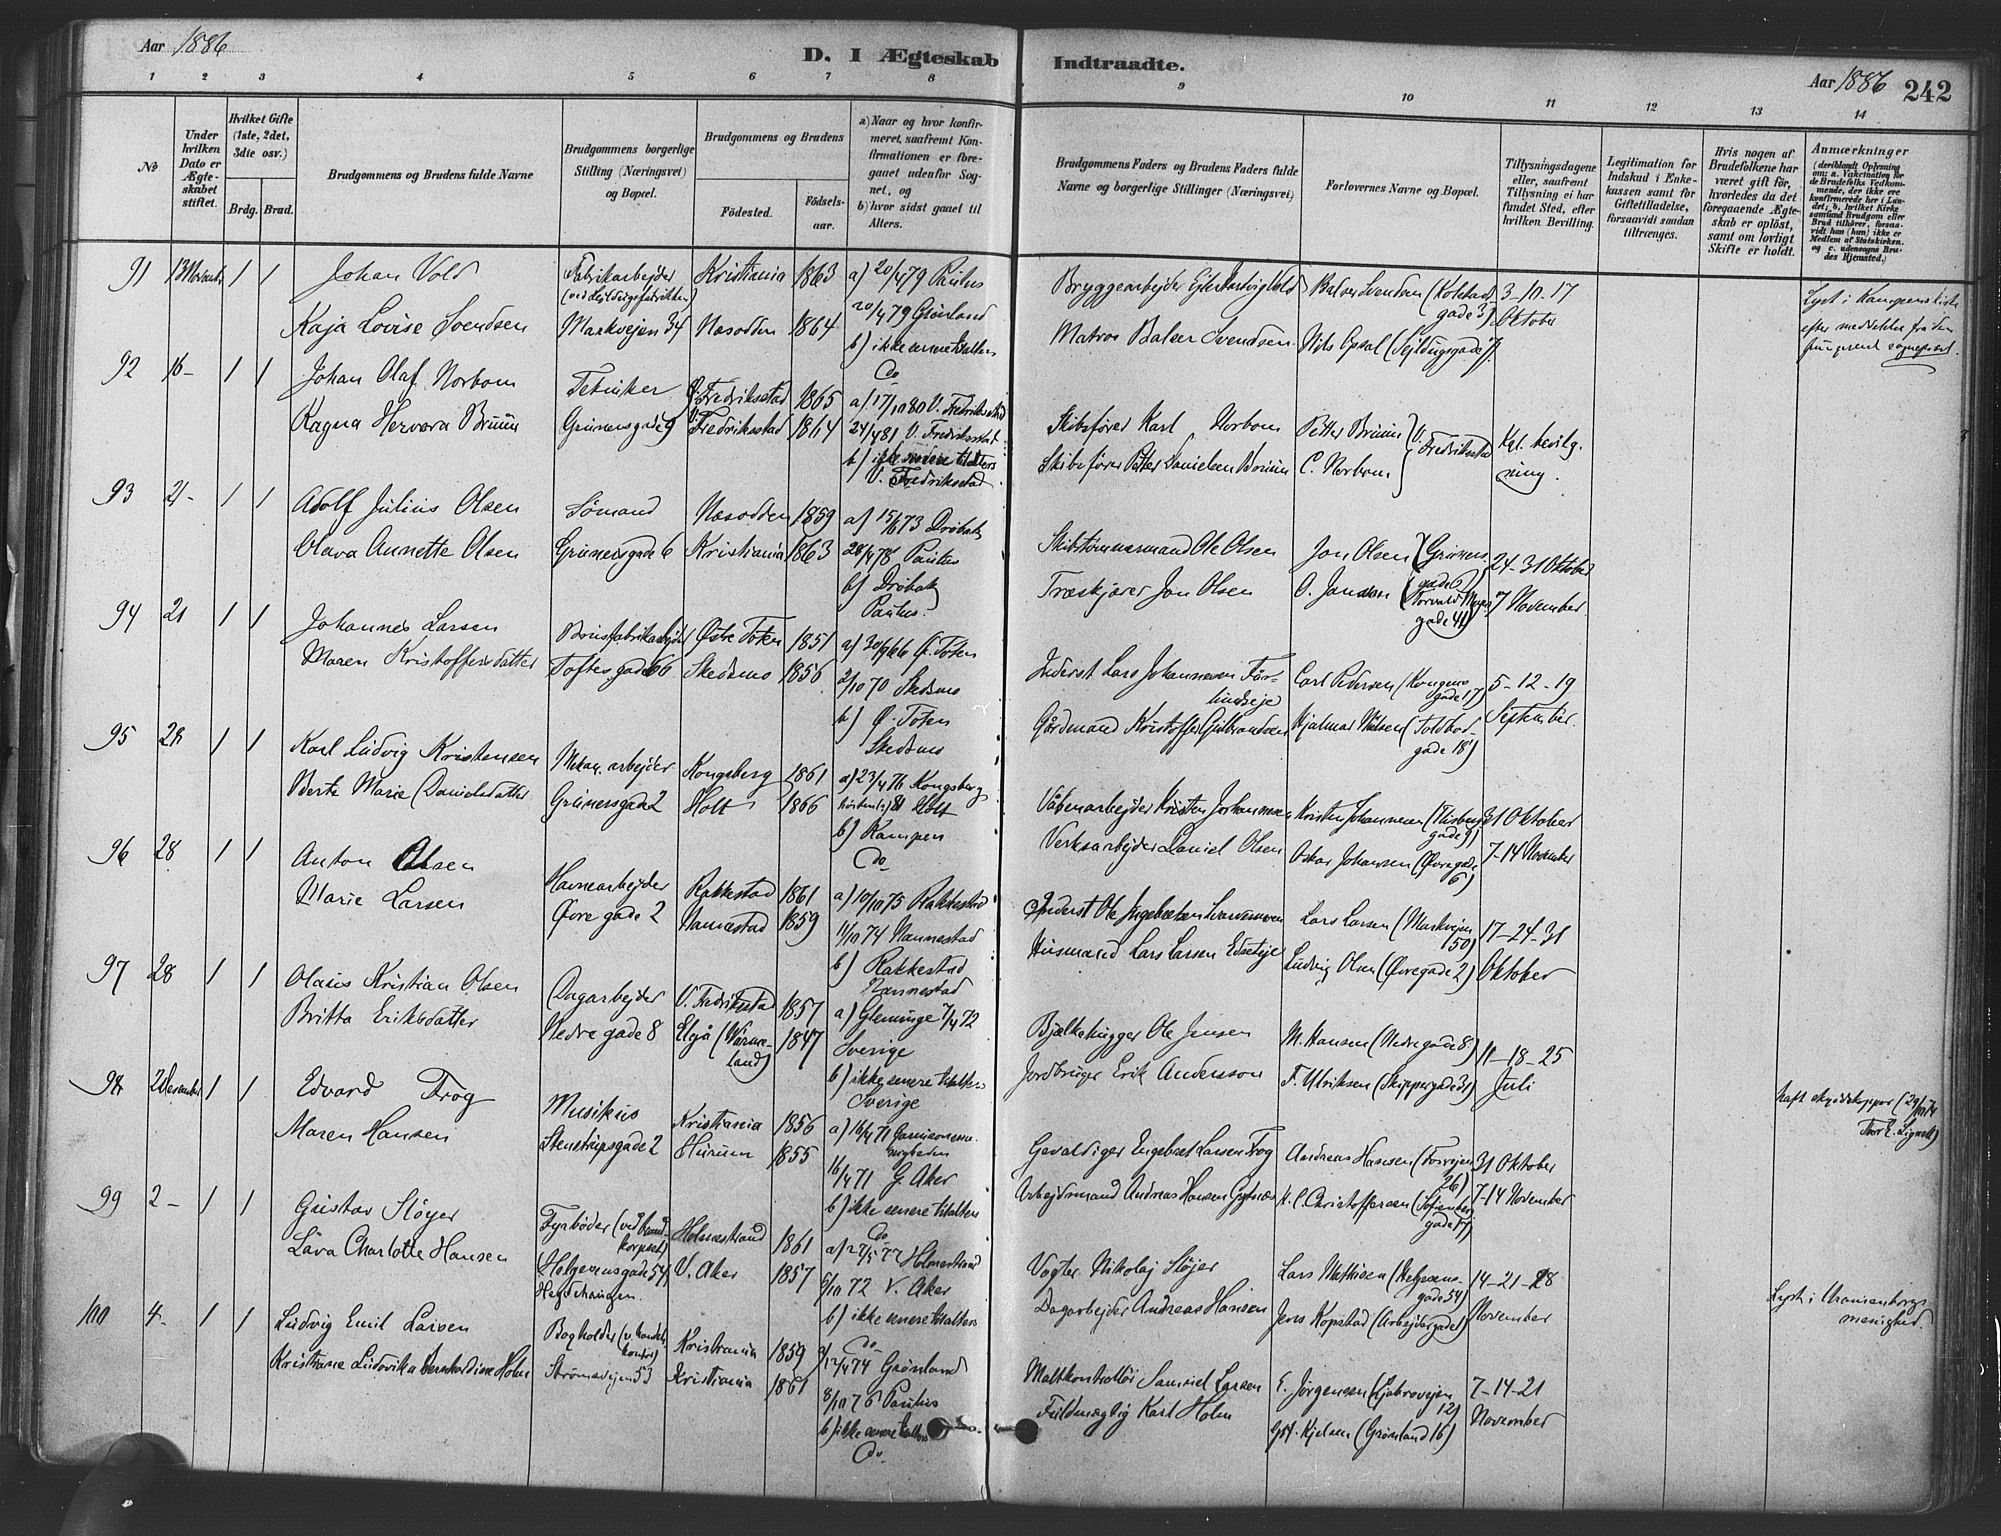 Aar 1886
D. I Ægteskab Indtraadte.
Aar 1886 242
1 2 3 4 5 6 7 8 9 10 11 12 13 14
No
Under hvilken Dato er Ægteskabet stiftet.
Hvilket Gifte (1ste, 2det, 3die osv.)
Brdg. Brud.
Brudgommens og Brudens fulde Navne
Brudgommens borgerlige Stilling (Næringsvei) og Bopæl.
Brudgommens og Brudens
Fødested.
Fødselsaar.
a) Naar og hvor konfirmeret, saafremt Konfirmationen er foregaaet udenfor Sognet, og
b) hvor sidst gaaet til Alters.
Brudgommens Faders og Brudens Faders fulde Navne og borgerlige Stillinger (Næringsvei)
Forlovernes Navne og Bopæl.
Tillysningsdagene eller, saafremt Tillysning ei har fundet Sted, efter hvilken Bevilling.
Legitimation for Indskud i Enkekassen samt for Giftetilladelse, forsaavidt saadan tiltrænges.
Hvis nogen af Brudefolkene har været gift før, hvorledes da det foregaaende Ægteskab er opløst, samt om lovligt Skifte er holdt.
Anmærkninger
(deriblandt Oplysning om: a. Vakcination for de Brudefolks Vedkommende, der ikke ere konfirmerede her i Landet; b. hvilket Kirkesamfund Brudgom eller Brud tilhører, forsaavidt han (hun) ikke er Medlem af Statskirken, og c. udensogns Brudes Hjemsted.)
91 13 Novemb. 1 1 Johan Vold Fabrikarbejder Kristiania 1863 a) 20/4 79 Paulus
Bryggearbejder Vold Balser Svendsen (Kolstadgade 3) 3-10-17 Oktober
Kaja Lovise Svendsen Markvejen 34 Næsodden 1864 20/4 79 Grønland
b) ikke senere tilalters
Matros Balser Svendsen Nils Opsal (Sejldugsgade)
Lyst i Kampens kirke
92 16 - 1 1 Johan Olaf Norbom Tekniker Fredriksstad 1865 a) 17/10 80 V. Fredriksstad
Ragna Hervora Bruun Grünersgade 9 Fredriksstad 1864 24/4 81 V. Fredrikstad
b) ikke senere tilalters V. Fredriksstad
Skibsfører Karl Norbom Petter Bruun V. Fredriksstad Kgl. bevilgning.
Skibsfører Petter Danielsen Bruun C. Norbom
93 21 - 1 1 Adolf Julius Olsen Sømand Næsodden 1859 a) 15/6 73 Drøbak
Olava Annette Olsen Grünersgade 6 Kristiania 1863 28/4 78 Paulus
b) Drøbak
Paulus.
Skibstømmermand Ole Olsen Jon Olsen (Grünersgade 6) 24-31 Oktober
Træskjærer Jon Olsen O. Jonassen (Torvald Meyersgade 41) 7 November
94 21 1 1 Johannes Larsen Brusfabrikarbejder Østre Toten 1851 a) 30/9 66 Ø. Toten
Maren Kristoffersdatter Toftesgade 66 Skedsmo 1856 2/10 70 Skedsmo
b) Ø. Toten
Skedsmo
Inderst Lars Johannesen Carl Pedersen (Kongensgade 17) 5-12-19 September.
Gårdmand Kristoffer Gulbrandsen Hjalmar Nilsen (Toldbodgade 18)
95 28 1 1 Karl Ludvig Kristensen Mekan. arbejder Kongsberg 1861 a) 23/4 76 Kongsberg
Berte Marie Danielsdatter Grünersgade 2 Holt 1866 81 Holt
b) Kampen
Do
Våbenarbejder Kristen Johannesen Kristen Johannesen 31 Oktober
Verksarbejder Daniel Olsen Oskar Johansen (Øvregade 6) 7-14 November
96 28. 1 1 Anton Olsen Havnearbejder Rakkestad 1861 a) 10/10 75 Rakkestad
Marie Larsen Øvre gade 2 Nannestad 1859 11/10 74 Nannestad
b) Rakkestad
Nannestad
Inderst Ole Ingebretsen Lars Larsen (Markvejen 50) 17-24-31
Husmand Lars Larsen Ludvig Olsen (Øvregade 2) Oktober
97 28 1 1 Olaus Kristian Olsen Dagarbejder V. Fredriksstad 1857 a) Glemminge 7/4 72
Britta Eriksdatter Nedre gade 8 Elgå (Värmeland) 1847 Sverige
b) ikke senere tilalters
Sverige
Bjælkehugger Ole Jensen M. Hansen (Nedregade 8.) 11-18-25
Jordbruger Erik Andersson F. Ulriksen (Skippergade 31) Juli
98 2 Desember 1 1 Edvard Frog Musikus Kristiania 1856 a) 16/4 71 Garnisonsmenigheden
Maren Hansen Stenstrupsgade 2 Hurum 1855 16/4 71 G. Aker
b) ikke senere tilalters
Do
Gevaldiger Engebret Larsen Frog Andreas Hansen (Fossvejen 26) 31 Oktober
Arbejdsmand Andreas Hansen H. C. Christoffersen (Sofienberggade) 7-14 November
haft skyddskoppor
99 2 - 1 1 Gustav Sløyer Fyrbøder (ved brandkorpset) Holmestrand 1861 a) 27/5 77 Holmestrand
Lava Charlotte Hansen Helgesensgade 54 V. Aker 1857 6/10 72 V. Aker
b) ikke senere tilalters
Do
Vogter Nikolaj Sløjer Lars Mathisen (Helgesensgade 54) 14-21-28
Dagarbejder Andreas Hansen Jens Kopstad (Arbejdergade) November
Lyst i Uranienborgs menighed.
100 4 - 1 1 Ludvig Emil Larsen Bogholder Kristiania 1859 a) 12/4 74 Grønland
Kristiane Ludovika Bernhardine Holm Strømsvejen 53 Kristiania 1861 8/10 76 Paulus
b) ikke senere tilalters
Do
Maltkontrollør Samuel Larsen E. Jørgensen (Ljabrovejen 12) 7-14-21
Fuldmægtig Karl Holm Gst. Kjelsen (Grønland 16) November